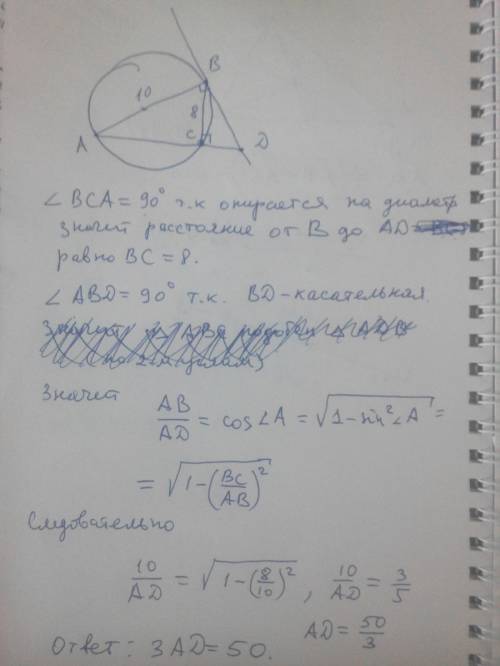 B
10
8
C
A
D
∠BCA = 90° т.к опирается на диаметр
значит расстояние от B до AD
равно BC = 8.
∠ABD = 90° т.к. BD - касательная.
Значит
AB/AD = cos∠A = √(1 - sin²∠A) =
= √(1 - (BC/AB)²)
Следовательно
10/AD = √(1 - (8/10)²), 10/AD = 3/5
AD = 50/3
Ответ: 3AD = 50.